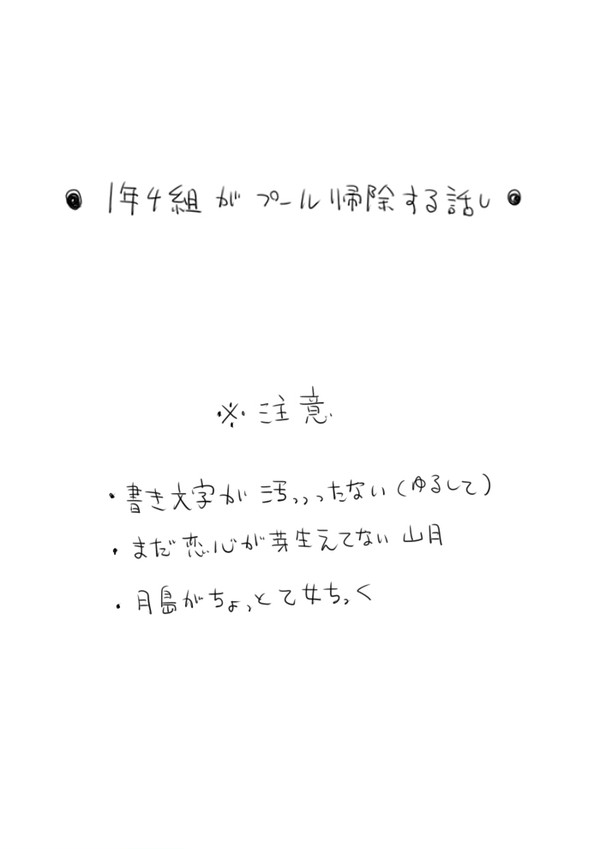 ● 1年4組がプール帰除する話し ●
※注意
・書き文字が汚っっったない(ゆるして)
・まだ恋心が芽生えてない山月
・月島がちょっと乙女ちっく